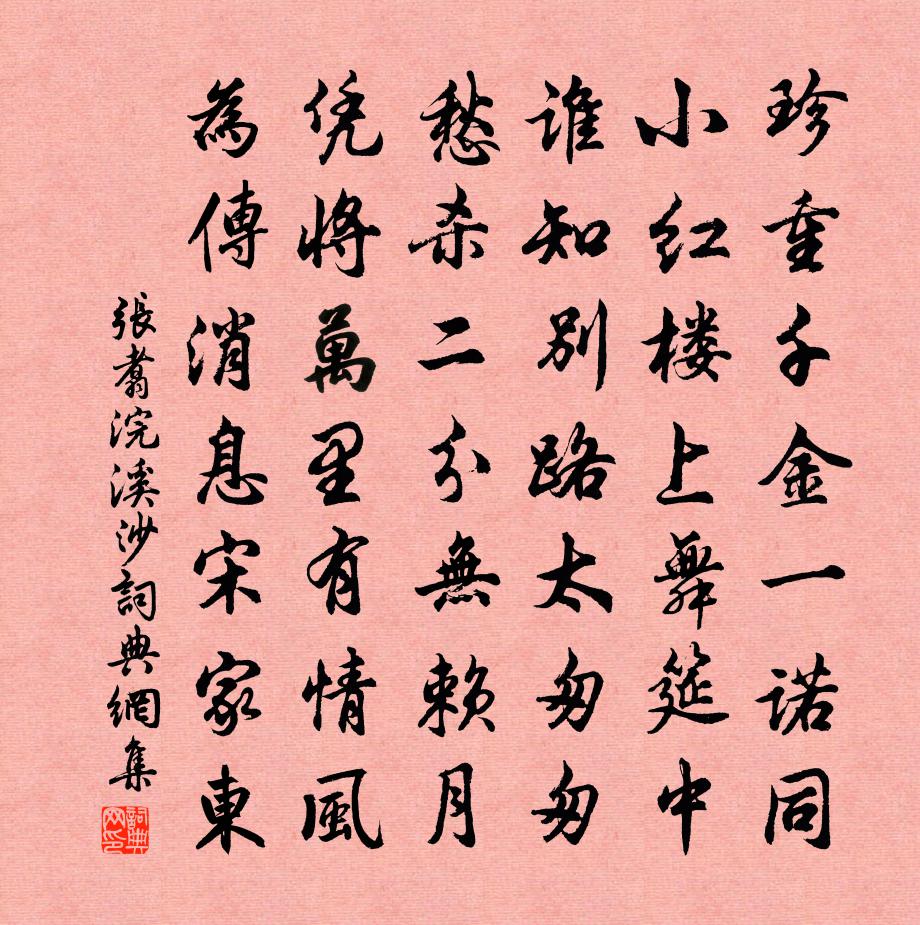 珍重千金一诺同
小红楼上舞筵中
谁知别路太匆匆
愁杀二分無赖月
凭將萬里有情風
為傳消息宋家東
張翥浣溪沙詞典網集
詞典网印